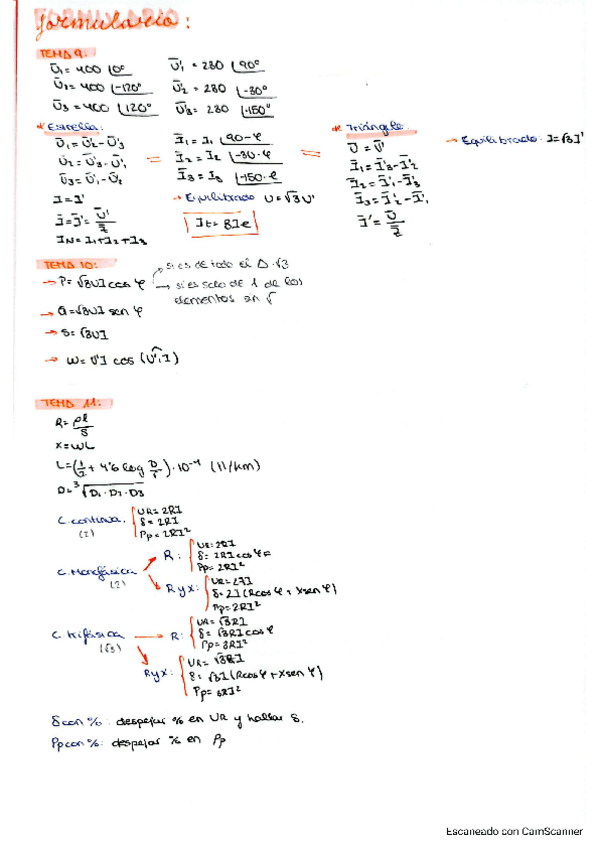 Formulario:
TEMA 9:
Ū₁ = 400 |0°   Ū'₁ = 230 |90°
Ū₂ = 400 |-120°   Ū'₂ = 230 |-30°
Ū₃ = 400 |120°   Ū'₃ = 230 |-150°
* Estrella:
Ū₁ = Ū'₂ - Ū'₃
Ū₂ = Ū'₃ - Ū'₁
Ū₃ = Ū'₁ - Ū'₂
I = I'
Ī = Ī' = Ū'/Z̄
I_N = I₁ + I₂ + I₃
=
Ī₁ = I₁ |90-φ
Ī₂ = I₂ |-30-φ
Ī₃ = I₃ |-150-φ
→ Equilibrado U = √3 U'
=
* Triángulo:
Ū = Ū'
Ī₁ = Ī'₃ - Ī'₂
Ī₂ = Ī'₁ - Ī'₃
Ī₃ = Ī'₂ - Ī'₁
Ī' = Ū/Z̄
→ Equilibrado: I = √3 I'
TEMA 10:
→ P = √3 U I cos φ
si es de todo el Δ·√3
→ si es solo de 1 de los
elementos sin √
→ Q = √3 U I sen φ
→ S = √3 U I
→ W = U' I cos (U', I)
TEMA 11:
R = ρl/S
X = ωL
L = (1/2 + 4'6 log D/r) · 10⁻⁴ (H/km)
D = ³√D₁ · D₂ · D₃
C. continua, (2)
UR = 2RI
δ = 2RI
Pp = 2RI²
C. Monofásica (2)
R:
UR = 2RI
δ = 2RI cos φ
Pp = 2RI²
R y X:
UR = 2ZI
δ = 2I (R cos φ + X sen φ)
Pp = 2RI²
C. trifásica (√3)
→ R:
UR = √3RI
δ = √3RI cos φ
Pp = 3RI²
R y X:
UR = √3RI
δ = √3I (R cos φ + X sen φ)
Pp = 3RI²
δ con %: despejar % en UR y hallar δ.
Pp con %: despejar % en Pp
Escaneado con CamScanner